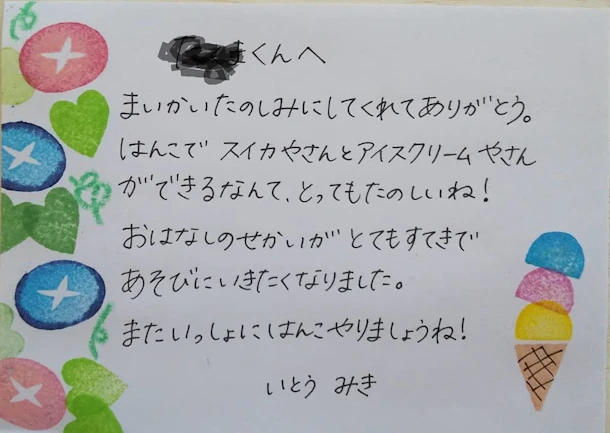 くんへ
まいかいたのしみにしてくれてありがとう。
はんこで スイカやさんとアイスクリームやさん
ができるなんて、とってもたのしいね!
おはなしのせかいが とてもすてきで
あそびにいきたくなりました。
またいっしょにはんこやりましょうね!
いとう みき